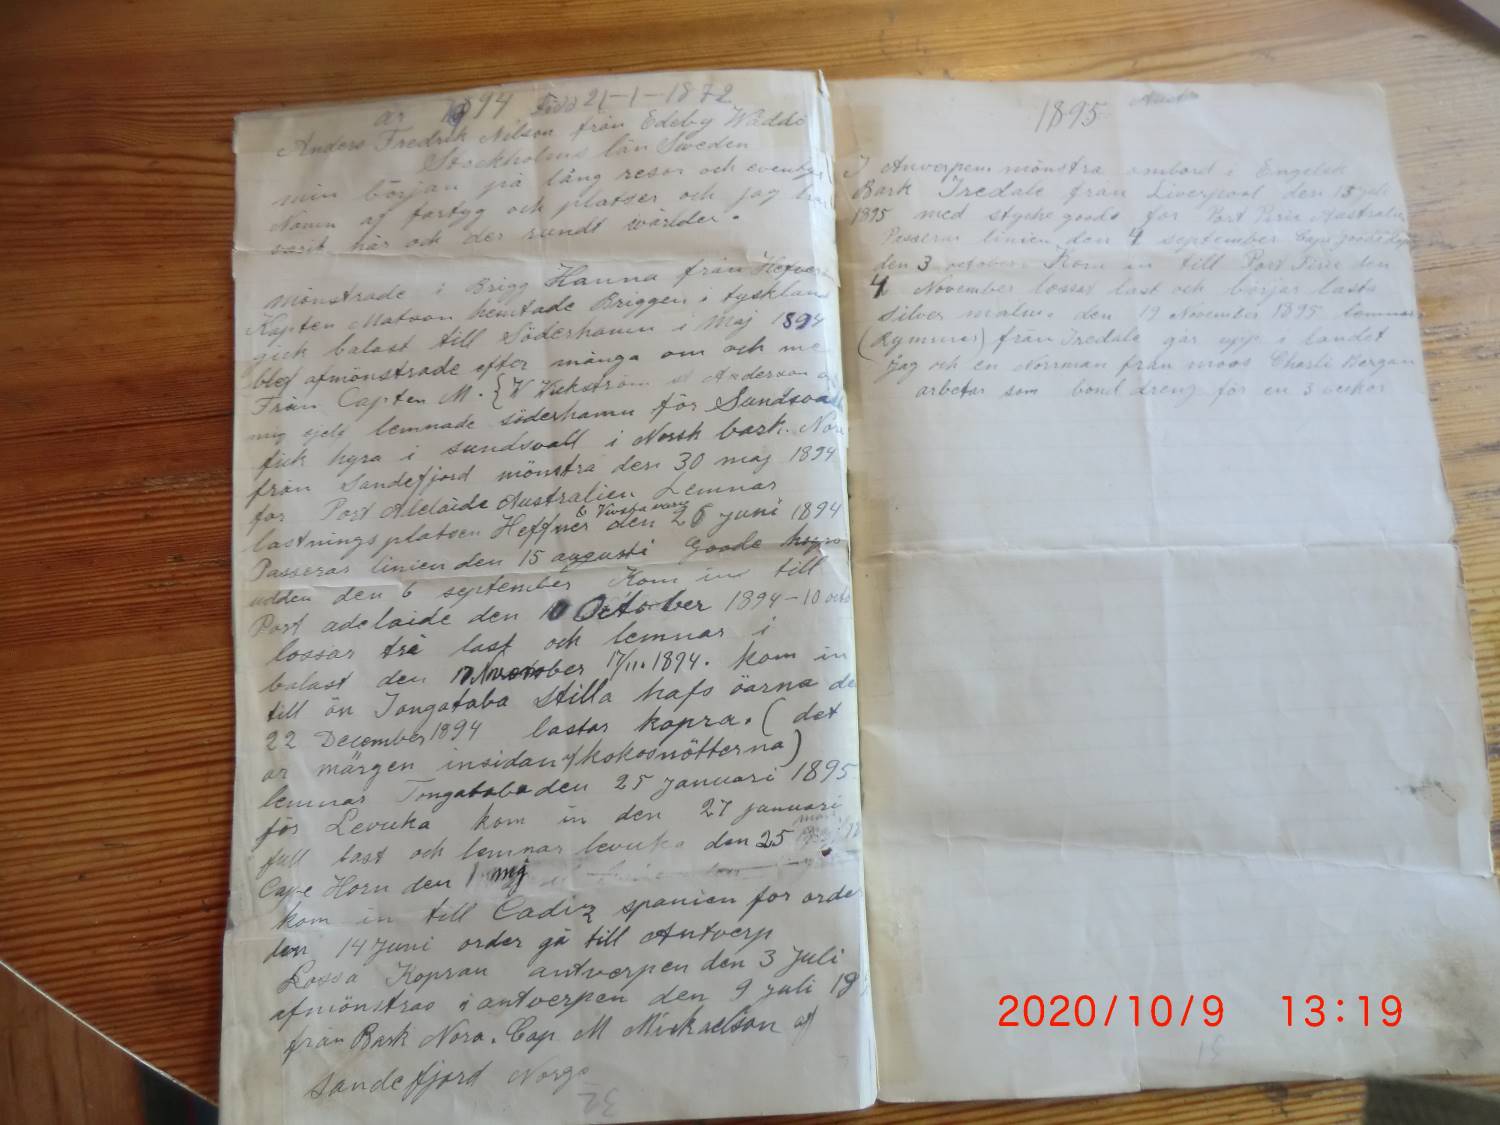 år 1894 Född 21-1-1872
Anders Fredrik Nilson från Edeby Wäddö
Stockholms län Sweden
min början på lång resor och eventyr
Namn af fartyg och platser och jag har
varit här och der rundt världen.
mönstrade i Brigg Hanna från
Kapten Matson hemtade Briggen i tyskland
gick balast till Söderhamn i Maj 1894
blef afmönstrade efter många om och me
Från Capten M. { W Wickström Anderson
mig sjelf lemnade söderhamn för Sundsvall
fick hyra i sundsvall i Norsk bark. Nora
från Sandefjord mönstra den 30 maj 1894
för Port Adelaide Australien Lemnar
lastningsplatsen den 26 juni 1894
Passerar linien den 15 augusti Goode hopps
udden den 6 september Kom in till
Port adelaide den 10 October 1894-10 octo
lossar trä last och lemnar i
balast den 17 November 17/11. 1894. kom in
till ön Tongataba Stilla hafs öarna de
22 December 1894 lastar kopra. (det
är märgen insidan af kokosnötterna)
lemnar Tongataba den 25 januari 1895
för Levuka kom in den 27 januari
full last och lemnar levuka den 25 mars
Cape Horn den 1 maj
kom in till Cadiz spanien for orde
den 14 juni order gå till Antwerp
Lossa Kopran antwerpen den 3 juli
afmönstras i antwerpen den 9 juli 19
från Bark Nora. Cap M Mickaelson af
Sandefjord Norge
32
1895
I Antwerpen mönstra ombord i Engelsk
Bark Iredale från Liverpool den 15 juli
1895 med styckegods för Port Pirie Australien
Passerar linien den 4 september Cape
den 3 october. Kom in till Port Pirie den
4 November lossar last och börjar lasta
silver malm. den 19 November 1895 lemnar
(Rymmer) från Iredale går upp i landet
jag och en Norrman från moss Charli Bergan
arbetar som bond dreng för en 3 veckor
31
2020/10/9 13:19